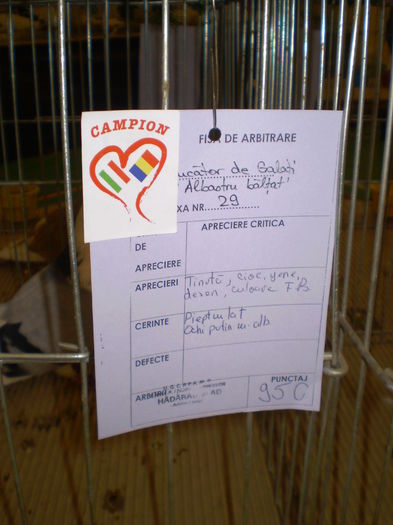 CAMPION
FIȘA DE ARBITRARE
ucător de Galați
Albastru bălțat
XA NR. 29
APRECIERE CRITICA
DE
APRECIERE
APRECIERI
Ținută, cioc, gene,
desen, culoare FB
CERINTE
Piept mai lat
Ochi puțin m. alb
DEFECTE
ARBITRU
HĂDĂRĂ
AD
PUNCTAJ
95 C